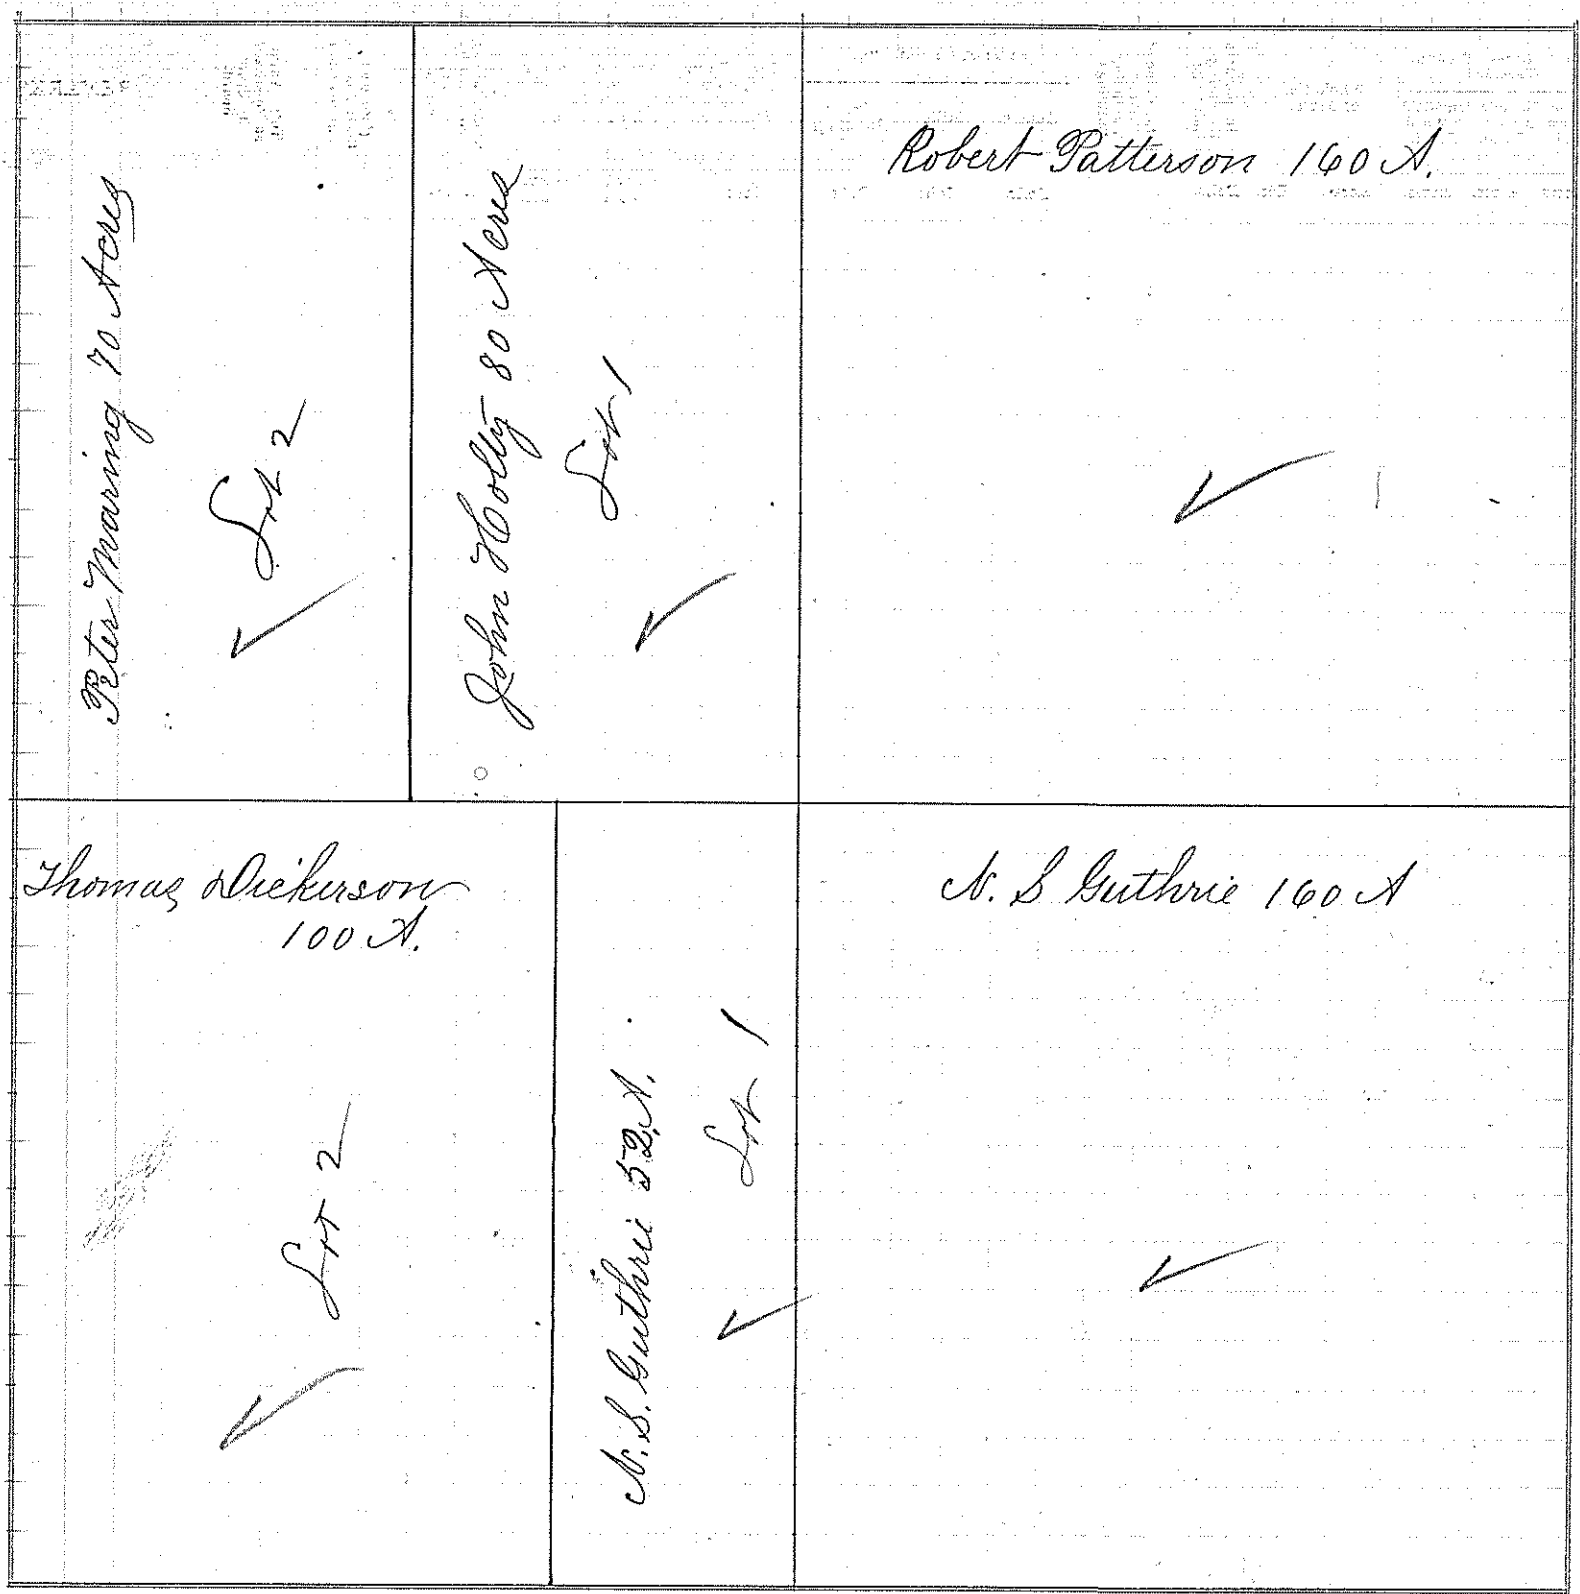 Peter Maring 70 Acres
Lot 2
John Holty 80 Acres
Lot 1
Robert Patterson 160 A.
Thomas Dickerson
100 A.
Lot 2
N. S. Guthrie 52 A.
Lot 1
N. S Guthrie 160 A